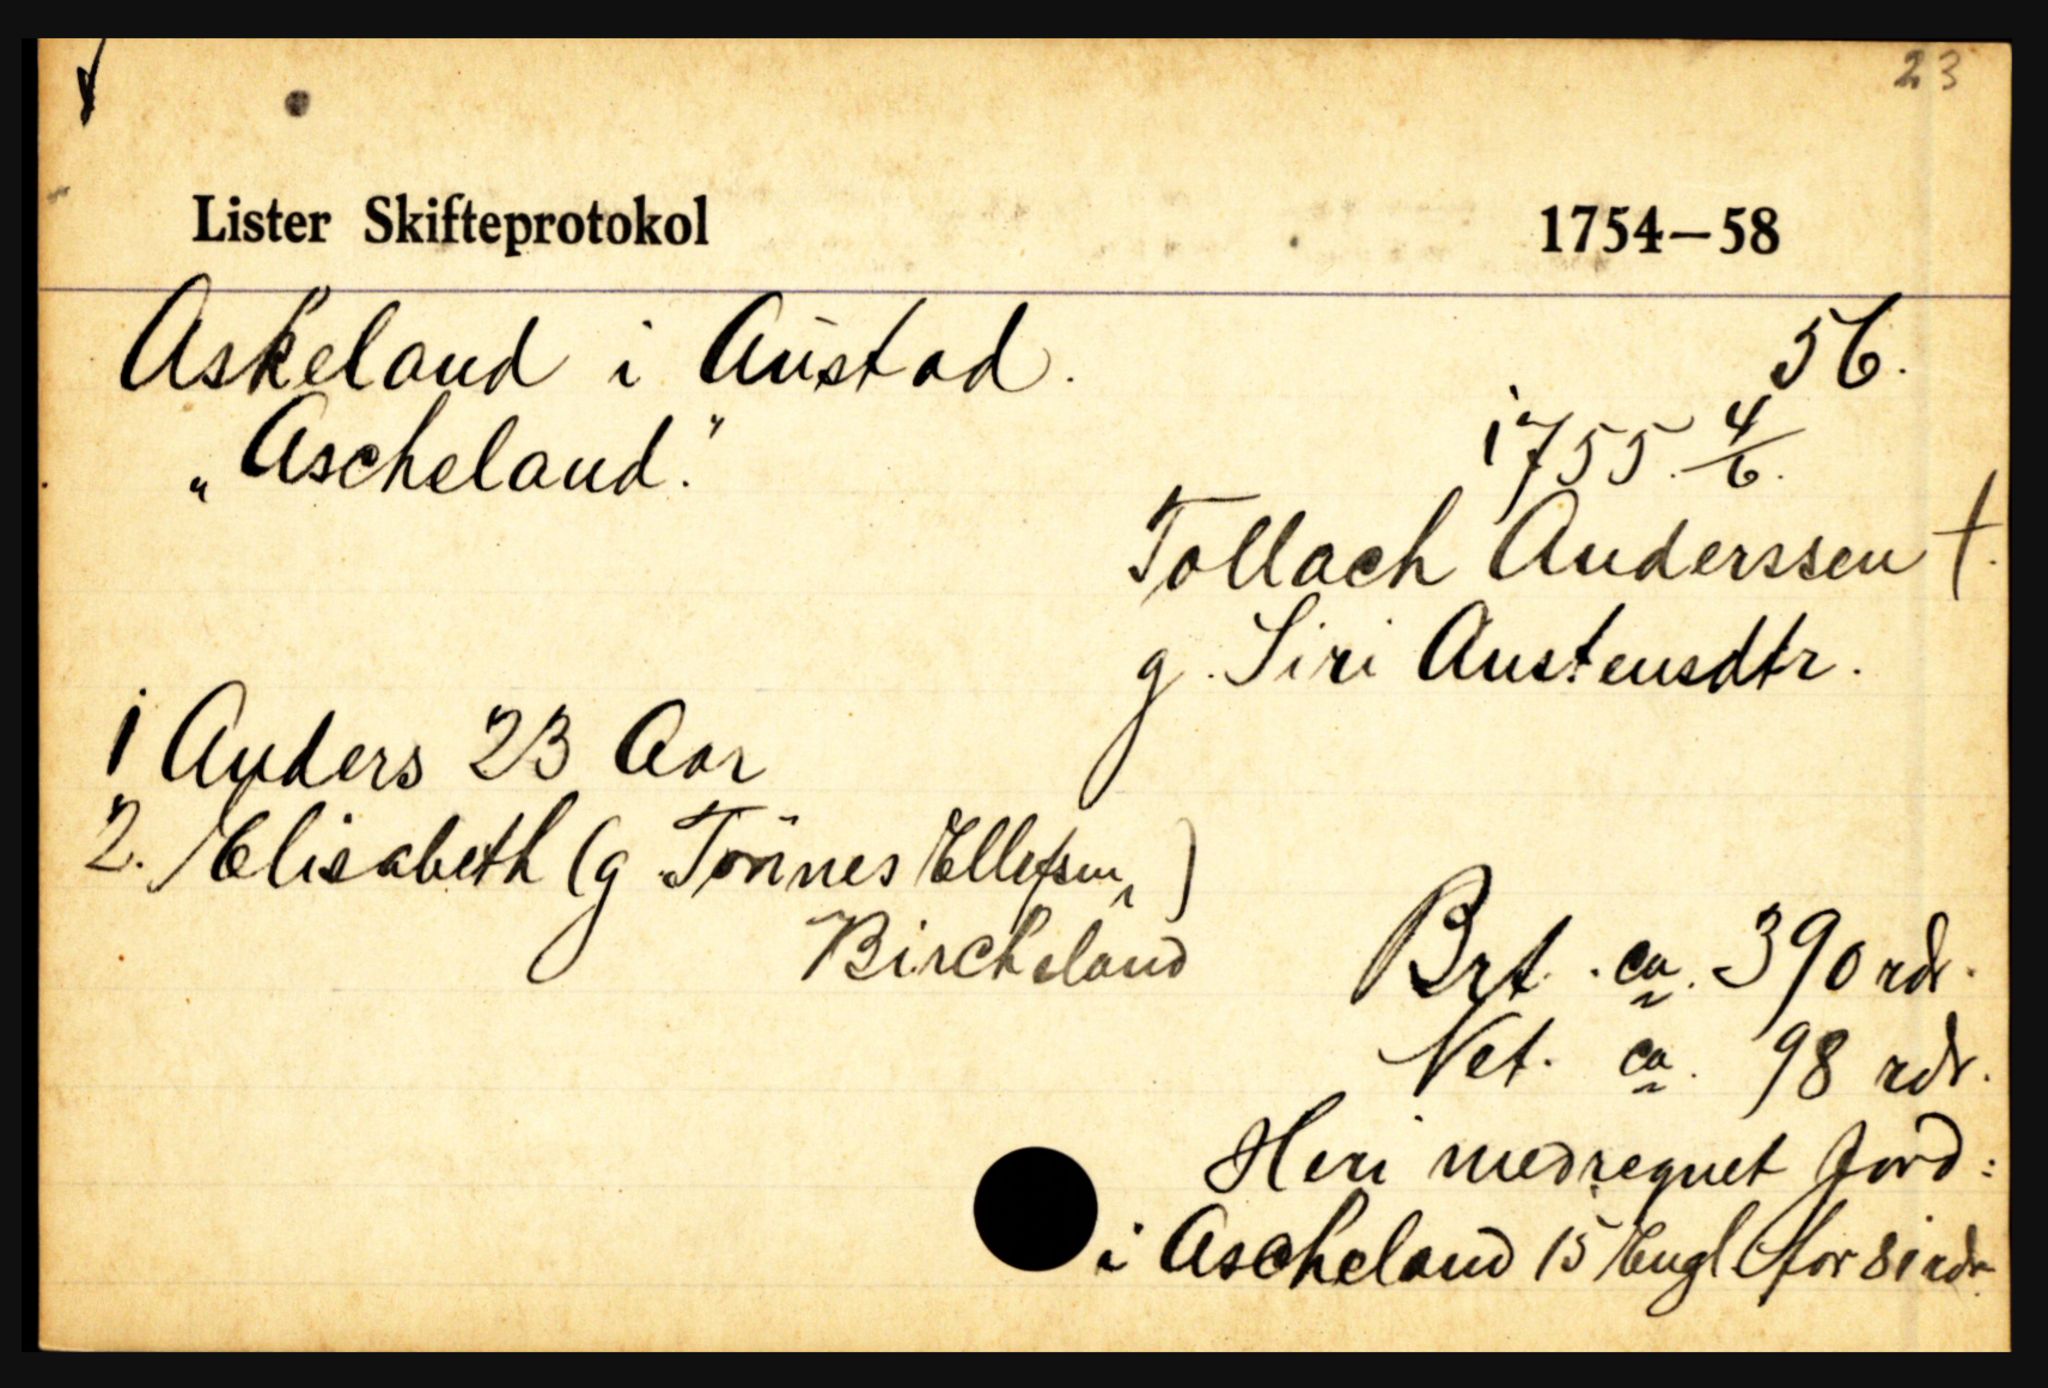 23
Lister Skifteprotokol 1754—58
Askeland i Austad. 56.
„Ascheland." 1755 4/6.
Tollach Anderssen †.
g. Siri Austensdtr.
1 Anders 23 Aar
2. Elisabeth (g. Tönnes Ellefsen,)
Bircheland
Brt. ca. 390 rdr.
Net. ca. 98 rdr.
Heri medregnet Jord:
i Ascheland 15 Engl for 81 rdr.